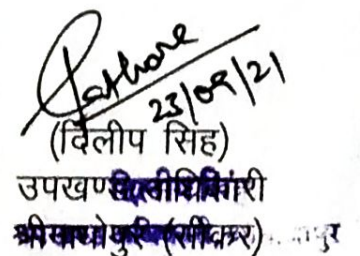 Rathore
23/09/21
(दिलीप सिंह)
उपखण्ड
श्रीमाधोपुर (सीकर)